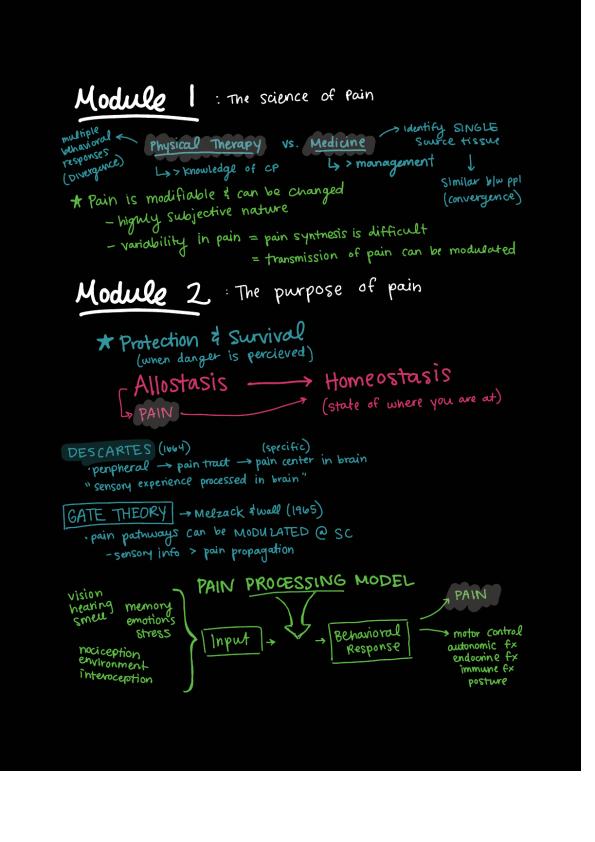 Module 1 : The science of Pain
multiple behavioral responses (Divergence) ← Physical Therapy vs. Medicine → identify SINGLE source tissue
↳ > knowledge of CP
↳ > management
↓
similar b/w ppl (convergence)
★ Pain is modifiable & can be changed
- highly subjective nature
- variability in pain = pain syntnesis is difficult
= transmission of pain can be modulated
Module 2 : The purpose of pain
★ Protection & Survival
(when danger is percieved)
Allostasis → Homeostasis
↳ PAIN → (state of where you are at)
DESCARTES (1664) (specific)
• peripheral → pain tract → pain center in brain
"sensory experience processed in brain"
GATE THEORY → Melzack & Wall (1965)
• pain pathways can be MODULATED @ SC
- sensory info > pain propagation
PAIN PROCESSING MODEL
vision
hearing
smell
memory
emotions
stress
nociception
environment
interoception
Input → → Behavioral Response
PAIN
motor control
autonomic fx
endocrine fx
immune fx
posture